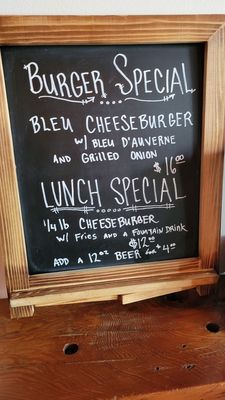 BURGER SPECIAL
BLEU CHEESEBURGER
W/ BLEU D'AUVERNE
AND GRILLED ONION
$16.00
LUNCH SPECIAL
1/4 lb CHEESEBURGER
W/ FRIES AND A FOUNTAIN DRINK
$12.00
ADD A 12oz BEER for $4.00